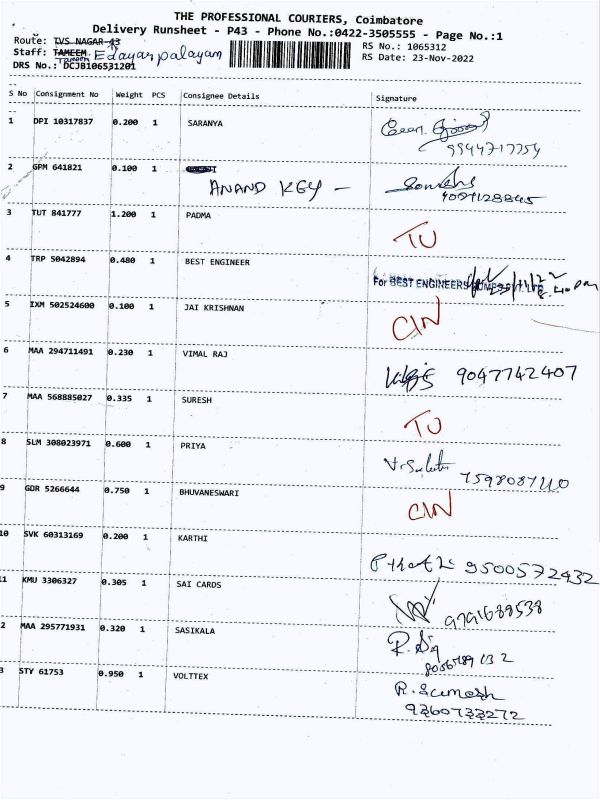 THE PROFESSIONAL COURIERS, Coimbatore
Delivery Runsheet - P43 - Phone No.:0422-3505555 - Page No.:1
Route: TVS NAGAR-43
Staff: TAMEEM Edayarpalayam
RS No.: 1065312
DRS No.: DCJB106531201
RS Date: 23-Nov-2022
S No Consignment No Weight PCS Consignee Details Signature
1 DPI 10317837 0.200 1 SARANYA
9944717754
2 GPM 641821 0.100 1
ANAND KEY -
3 TUT 841777 1.200 1 PADMA
TU
4 TRP 5042894 0.480 1 BEST ENGINEER
For BEST ENGINEERS
5 IXM 502524600 0.100 1 JAI KRISHNAN
CIN
6 MAA 294711491 0.230 1 VIMAL RAJ
9047742407
7 MAA 568885027 0.335 1 SURESH
TU
8 SLM 308023971 0.600 1 PRIYA
9 GDR 5266644 0.750 1 BHUVANESWARI
CIN
10 SVK 60313169 0.200 1 KARTHI
9500572432
11 KMU 3306327 0.305 1 SAI CARDS
9791689538
2 MAA 295771931 0.320 1 SASIKALA
3 STY 61753 0.950 1 VOLTTEX
9360733272